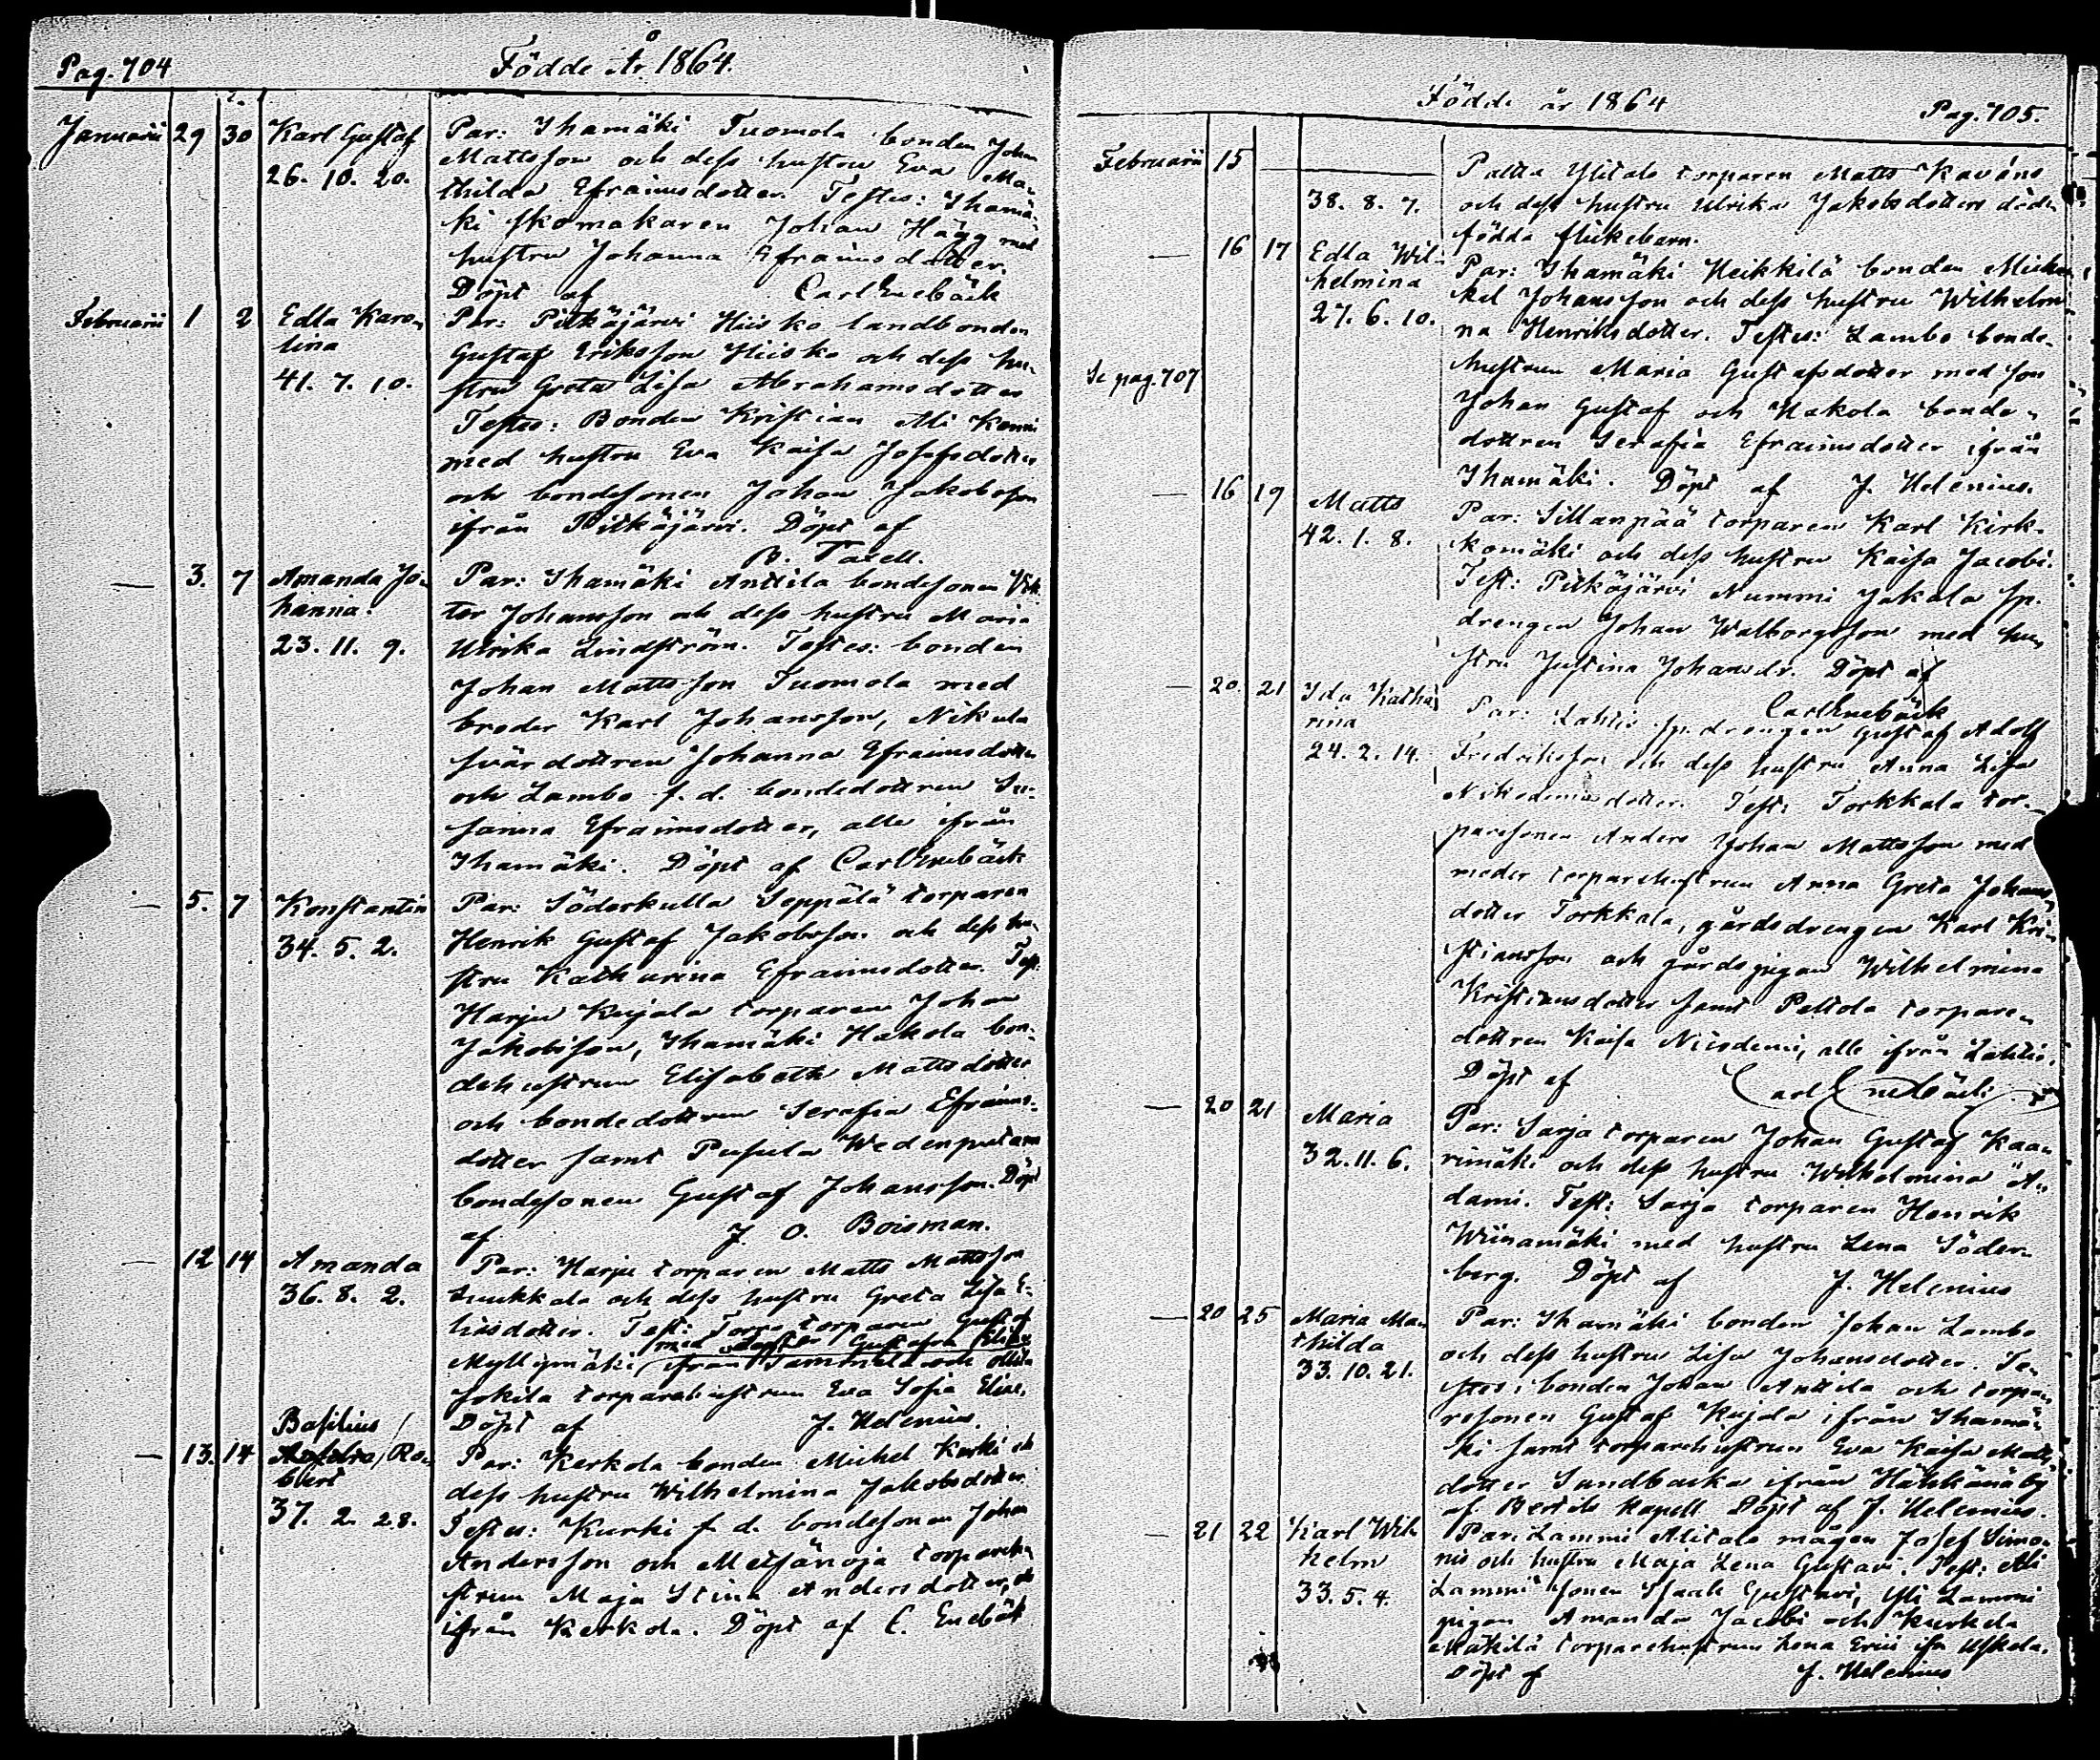 Pag. 704
Födde År 1864.
Januarii 29 30 Karl Gustaf
26. 10. 20.
Par: Ihamäki Tuomola bonden Johan
Mattsson och dess hustru Eva Ma-
thilda Efraimsdotter. Testes: Ihamä-
ki skomakaren Johan Hägg med
hustru Johanna Efraimsdotter.
Döpt af Carl Enebäck
Februarii 1 2 Edla Karo-
lina
41. 7. 10.
Par: Pitkäjärvi Hiisko landbonden
Gustaf Eriksson Hiisko och dess hu-
stru Greta Lisa Abrahamsdotter
Testes: Bonden Kristian Ali
med hustru Eva Kaisa Josefsdotter
och bondesonen Johan Jakobsson
ifrån Pitkäjärvi. Döpt af
— 3. 7 Amanda Jo-
hanna.
23. 11. 9.
Par: Ihamäki Anttila bondesonen Vik-
tor Johansson och dess hustru Maria
Ulrika Lindström. Testes: bonden
Johan Mattsson Tuomola med
broder Karl Johansson, Nikula
svärdottren Johanna Efraimsdotter
och Lambo f. d. bondedottren Su-
sanna Efraimsdotter, alla ifrån
Ihamäki. Döpt af Carl Enebäck
— 5. 7 Konstantin
34. 5. 2.
Par: Söderkulla Seppälä torparen
Henrik Gustaf Jakobsson och dess hu-
stru Katharina Efraimsdotter. Test:
Harju Kujala torparen Johan
Jakobsson, Ihamäki Hakola bon-
dehustrun Elisabeth Mattsdotter
och bondedottren Serafia Efraims-
dotter samt Pusula Wedenpää
bondesonen Gustaf Johansson. Döpt
af J. O. Boisman.
— 12 14 Amanda
36. 8. 2.
Par: Harju torparen Matts Mattsson
och dess hustru Greta Lisa E-
liasdotter. Test: torparen Gustaf
med dotter Gustafva
Myllymäki ifrån och
Jokila torparehustrun Eva Sofia
Döpt af J. Helenius.
Basilius
— 13. 14 Ro-
bert
37. 2. 28.
Par: Kerkola bonden Michel Kurki och
dess hustru Wilhelmina Jakobsdotter.
Testes: Kurki f. d. bondesonen Johan
Andersson och Metsänoja torparehu-
strun Maja Stina Andersdotter,
ifrån Kerkola. Döpt af C. Enebäck
Födde år 1864
Pag. 705.
Februarii 15
38. 8. 7.
Paltta Ylitalo torparen Matts
och dess hustru Ulrika Jakobsdotters död-
födda flickebarn.
— 16 17 Edla Wil-
helmina
27. 6. 10.
Par: Ihamäki Heikkilä bonden Mi-
kel Johansson och dess hustru Wilhelmi-
na Henriksdotter. Testes: Lambo bonde-
hustrun Maria Gustafsdotter med son
Johan Gustaf och Hakola bonde-
dottren Serafia Efraimsdotter ifrån
Ihamäki. Döpt af J. Helenius.
Se pag. 707
— 16 19 Matts
42. 1. 8.
Par: Sillanpää torparen Karl Kirk-
komäki och dess hustru Kaisa Jacobi.
Test: Pitkäjärvi Nummi Jakola sp.
drengen Johan Walborgsson med hu-
stru Justina Johansdr. Döpt af
Carl Enebäck
— 20. 21 Ida Katha-
rina
24. 2. 14.
Par: Lahtis sp. drengen Gustaf Adolf
Fredriksson och dess hustru Anna Lisa
Nikodemidotter. Test: Torkkala tor-
paresonen Anders Johan Mattsson med
moder torparehustrun Anna Greta Johans-
dotter Torkkala, gårdsdrengen Karl Kri-
stiansson och gårdspigan Wilhelmina
Kristiansdotter samt Peltola torpare-
dottren Kaisa Nicodemi, alla ifrån Lahtis.
Döpt af Carl Enebäck
— 20 21 Maria
32. 11. 6.
Par: Sarja torparen Johan Gustaf Kaa-
rimäki och dess hustru Wilhelmina A-
dami. Test: Sarja torparen Henrik
Wiinamäki med hustru Lena Söder-
berg. Döpt af J. Helenius
— 20 25 Maria Ma-
thilda
33. 10. 21.
Par: Ihamäki bonden Johan Lambo
och dess hustru Lisa Johansdotter. Te-
stes: bonden Johan Anttila och torpa-
resonen Gustaf Kujala ifrån Ihamä-
ki samt torparehustrun Eva Kaisa Matts-
dotter Sundbacka ifrån Häkkänäby
af Bertils kapell. Döpt af J. Helenius.
— 21 22 Karl Wil-
helm
33. 5. 4.
Par: Lammi Alitalo mågen Josef Simo-
nis och hustru Maja Lena Gustavi. Test: Ali
Lammi sonen Isaak Gustavi, Yli Lammi
pigan Amanda Jacobi och Kurkela
Mäkilä torparehustrun Lena Erici ifr. Uskela.
Döpt af J. Helenius